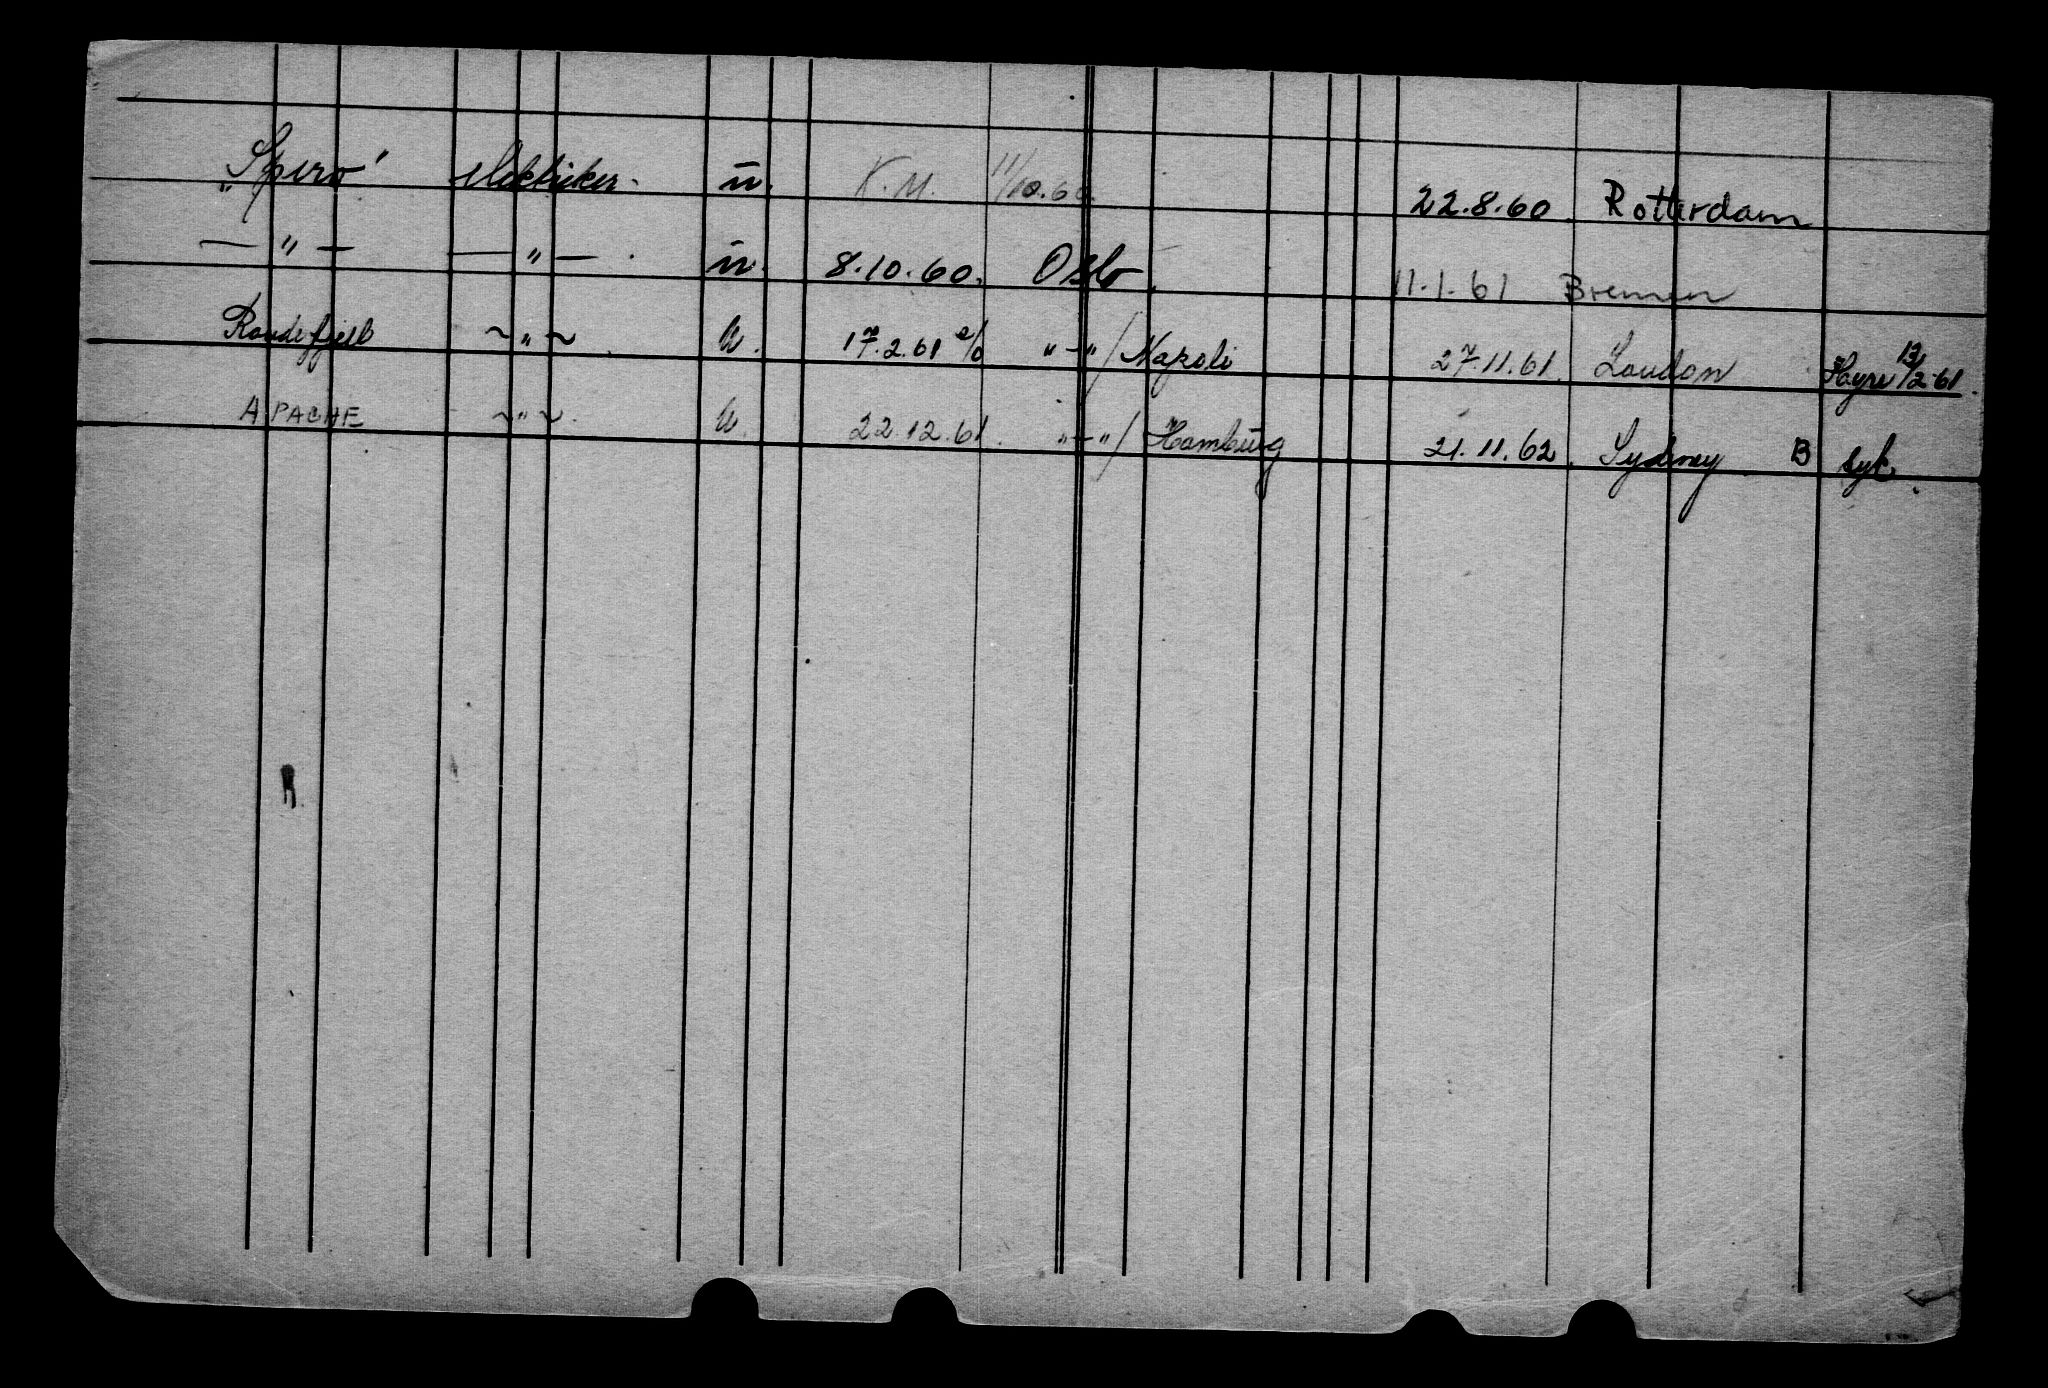 „Spero" elektriker. ū. K.M. 11/10.60. 22.8.60. Rotterdam
— „ — — „ — . ū. 8.10.60. Oslo. 11.1.61 Bremen
Rondefjell ~ „ ~ . U. 17.2.61 „-„ / Napoli 27.11.61. London 13/2-61.
APACHE ~ „ ~ . U. 22.12.61. „-„ / Hamburg 21.11.62. Sydney. B syk.